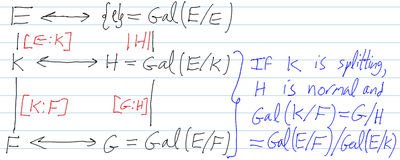 E ⟷ {e} = Gal(E/E)
|[E:K] |H||
K ⟷ H = Gal(E/K)
|[K:F] [G:H]|
F ⟷ G = Gal(E/F)
If K is splitting,
H is normal and
Gal(K/F) = G/H
= Gal(E/F)/Gal(E/K)